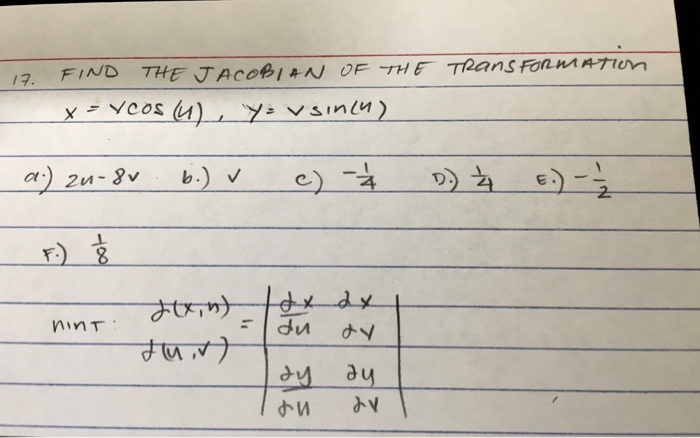 17. FIND THE JACOBIAN OF THE TRANSFORMATION
x = vcos(u), y = v sin(u)
a.) 2u-8v b.) v c) -1/4 D.) 1/4 E.) -1/2
F.) 1/8
HINT: ∂(x,y)/∂(u,v) = | ∂x/∂u ∂x/∂v |
| ∂y/∂u ∂y/∂v |